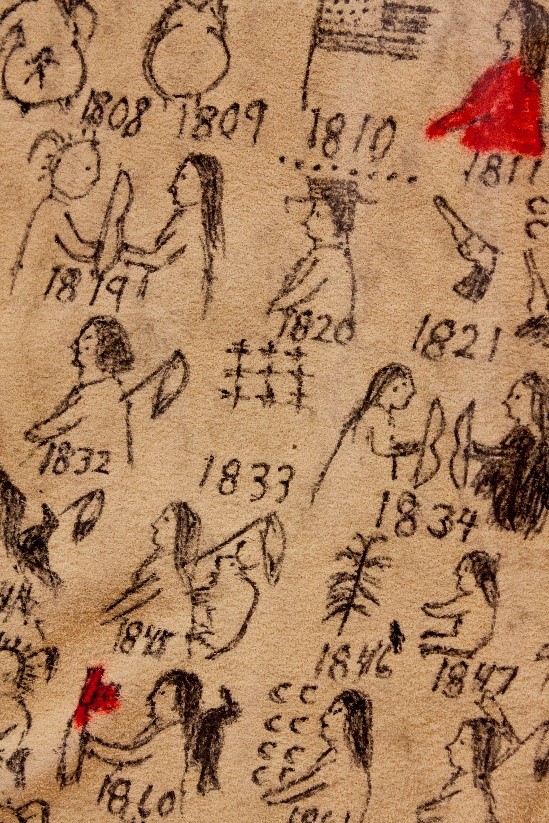 1808 1809 1810 1811
1819 1820 1821
1832 1833 1834
1845 1846 1847
1860